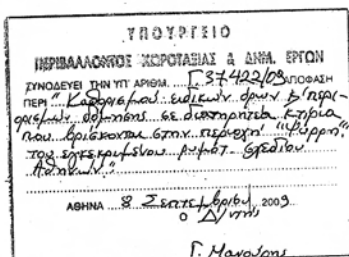 ΥΠΟΥΡΓΕΙΟ
ΠΕΡΙΒΑΛΛΟΝΤΟΣ ΧΩΡΟΤΑΞΙΑΣ & ΔΗΜ. ΕΡΓΩΝ
ΣΥΝΟΔΕΥΕΙ ΤΗΝ ΥΠ' ΑΡΙΘΜ. Γ37422/09 ΑΠΟΦΑΣΗ
ΠΕΡΙ "Καθορισμού ειδικών όρων & περι-
ορισμών δόμησης σε διατηρητέα κτίρια
που βρίσκονται στην περιοχή "Ψυρρή"
του εγκεκριμένου ρυμοτ. σχεδίου
Αθηνών"
ΑΘΗΝΑ 8 Σεπτεμβρίου 2009
Ο Δ/ντης
Γ. Μανούρης